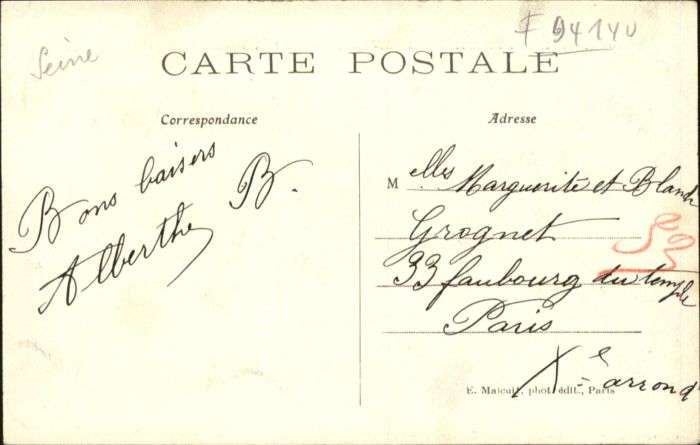 Seine
F 94140
CARTE POSTALE
Correspondance
Adresse
Bons baisers
Alberthe B.
Melles Marguerite et Blanch
Grognet
33 faubourg du temple
Paris
Xe arrondt
E. Malcuit, phot. édit., Paris